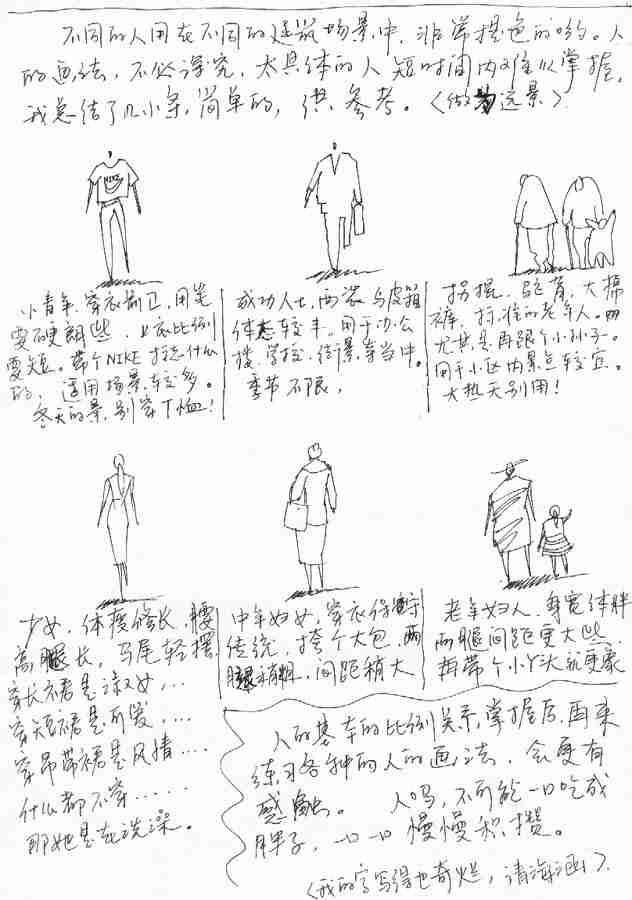 不同的人用在不同的建筑场景中，非常提色的哟。人
的画法，不必深究，太具体的人短时间内难以掌握，
我总结了几小条，简单的，供参考。（做为远景）
NIKE
小青年，穿衣前卫，用笔
要硬朗些，上衣比例
要短。带个NIKE标志什么
的，适用场景较多。
冬天的景，别穿T恤！
成功人士，西装与皮箱
体态较丰。用于办公
楼，学校，街景等当中。
季节不限，
拐棍，驼背，大棉
裤，标准的老年人。
尤其是再跟个小孙子。
用于小区内景点较宜。
大热天别用！
少女，体度修长，腰
高腿长，马尾轻摆
穿长裙是淑女，...
穿短裙是可爱，...
穿吊带裙是风情...
什么都不穿......
那她是在洗澡。
中年妇女，穿衣保守
传统，挎个大包，两
腿稍粗，间距稍大
老年妇人，身宽体胖
两腿间距更大些，
再带个小丫头就更象
人的基本的比例关系，掌握后，再来
练习各种的人的画法，会更有
感触。 人吗，不可能一口吃成
胖子，一口一口慢慢积攒。
（我的字写得也奇烂，请海涵！）